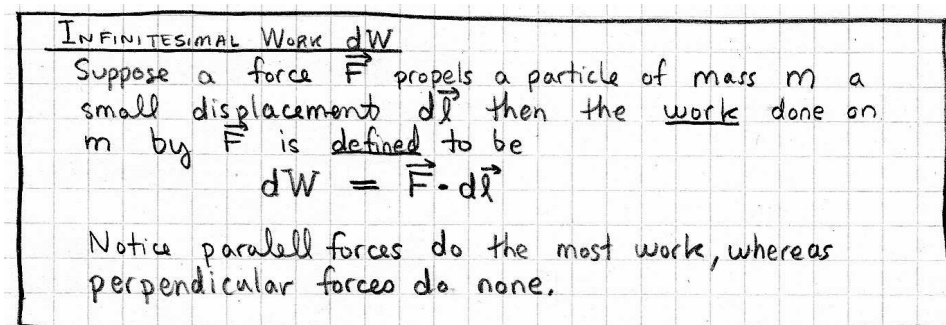 INFINITESIMAL WORK dW
Suppose a force F⃗ propels a particle of mass m a
small displacement dl⃗ then the work done on
m by F⃗ is defined to be
dW = F⃗ · dl⃗
Notice paralell forces do the most work, whereas
perpendicular forces do none.